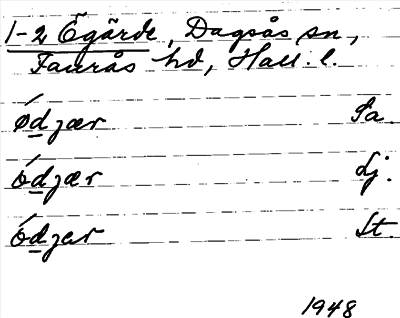 1-2 Ögärde, Dagsås sn,
Faurås hd, Hall. l.
ódjær Sa.
ódjær dj.
ódjer St.
1948